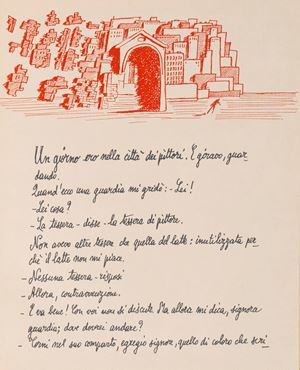 Un giorno ero nella città dei pittori. E giravo, guar-
dando.
Quand'ecco una guardia mi gridò: - Lei!
- Lei cosa?
- La tessera - disse - la tessera di pittore.
Non avevo altre tessere che quella del latte: inutilizzata per-
chè il latte non mi piace.
- Nessuna tessera - risposi
- Allora, contravvenzione.
- E va bene! Con voi non si discute. Ma allora mi dica, signora
guardia; dove dovrei andare?
- Torni nel suo comparto, egregio signore, quello di coloro che scri-